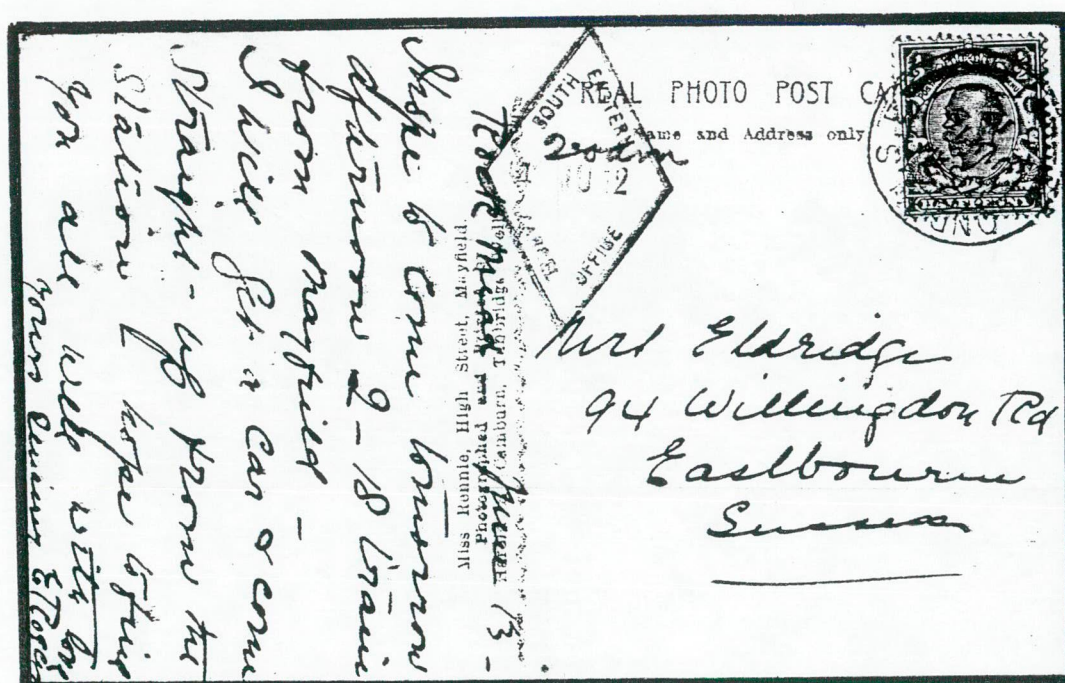 REAL PHOTO POST CA
Name and Address only
SOUTH EASTERN
OFFICE
Mrs Eldridge
94 Willingdon Rd
Eastbourne
Sussex
Miss Rennie, High Street, Mayfield
Photographed and
Camburn,
June 13 -
Hope to come tomorrow
afternoon 2-18 train
from Mayfield -
I will get a car & come
straight up from the
Station I hope to find
you all well with love
yours